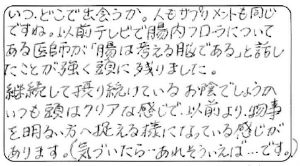 いつ、どこで出会うか。人もサプリメントも同じ
ですね。以前テレビで腸内フローラについて
ある医師が「腸は考える脳である」と話し
たことが強く頭に残りました。
継続して摂り続けているお陰でしょうか
いつも頭はクリアな感じで、以前より、物事
を明るい方へ捉える様になっている感じが
あります。（気づいたら…あれそういえば…です。）